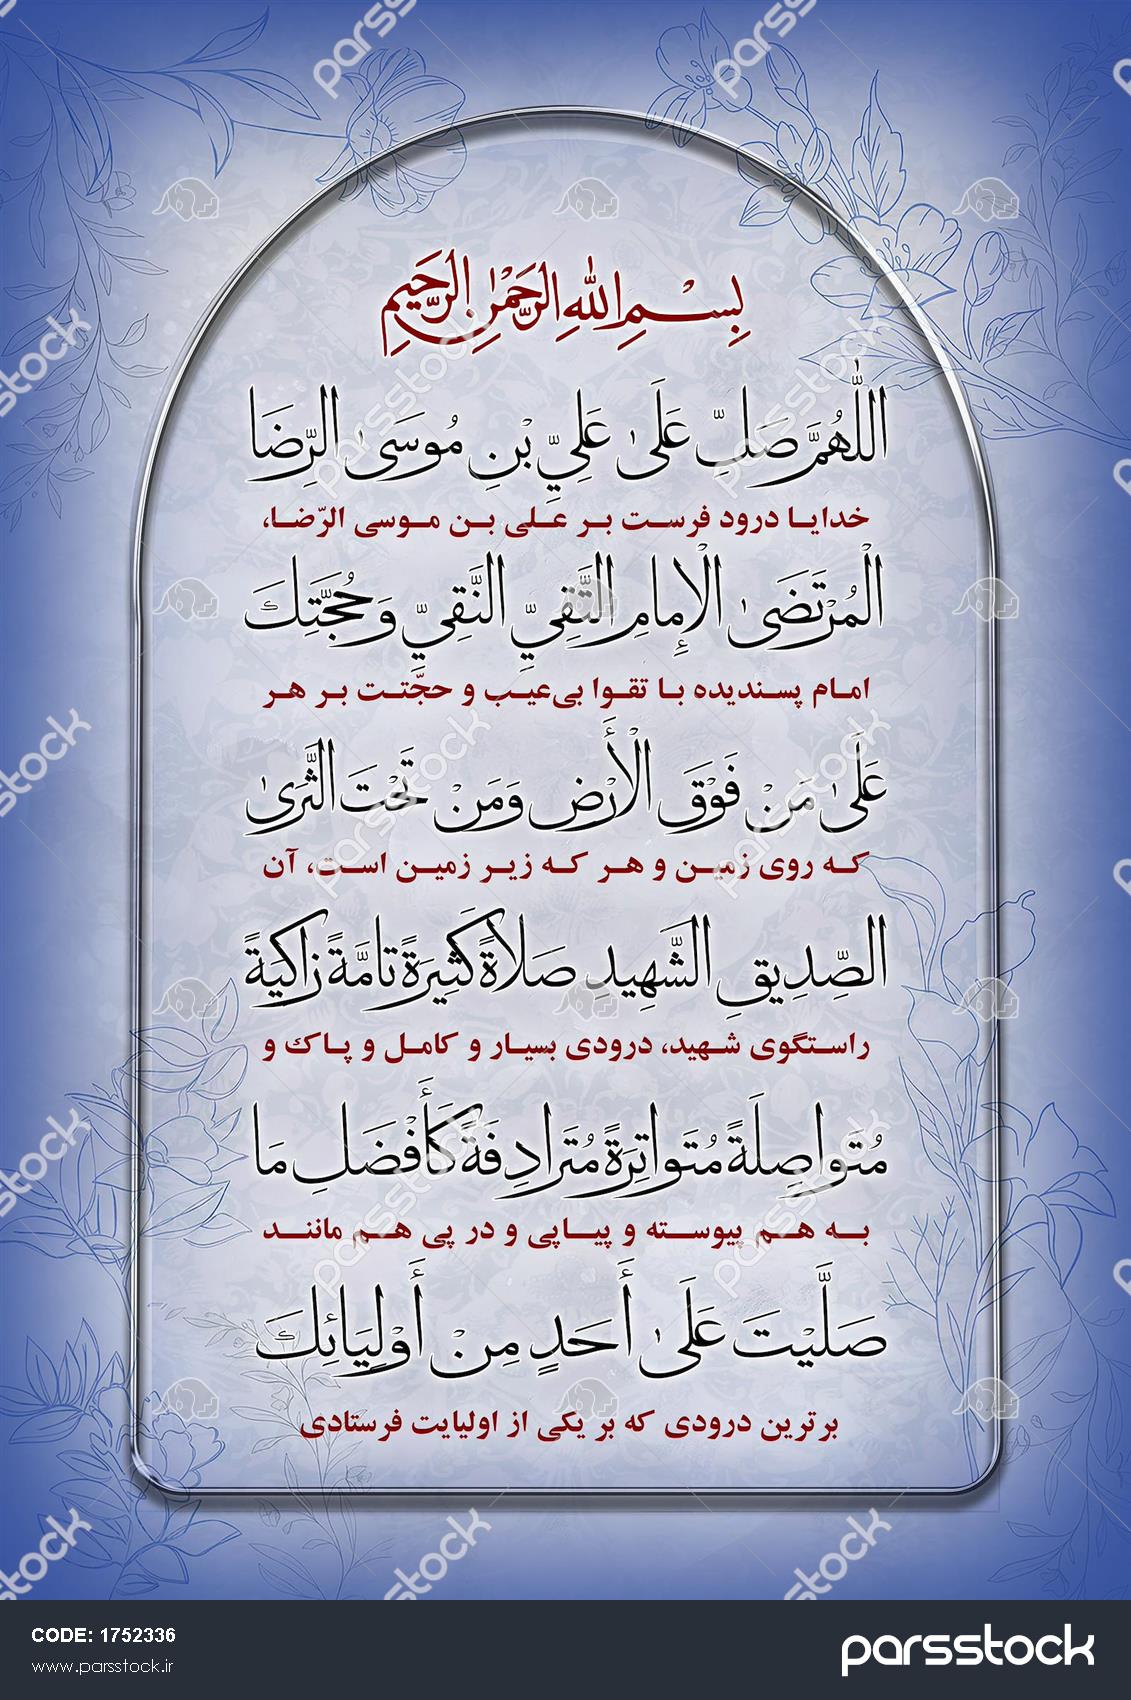 بِسْمِ اللهِ الرَّحْمٰنِ الرَّحِيمِ
اللّٰهُمَّ صَلِّ عَلَىٰ عَلِيِّ بْنِ مُوسَىٰ الرِّضَا
خدایا درود فرست بر علی بن موسی الرّضا،
الْمُرْتَضَىٰ الْإِمامِ التَّقِيِّ النَّقِيِّ وَحُجَّتِكَ
امام پسندیده با تقوا بی‌عیب و حجّتت بر هر
عَلىٰ مَنْ فَوْقَ الْأَرْضِ وَمَنْ تَحْتَ الثَّرىٰ
که روی زمین و هر که زیر زمین است، آن
الصِّدِيقِ الشَّهِيدِ صَلاةً كَثِيرَةً تامَّةً زاكِيَةً
راستگوی شهید، درودی بسیار و کامل و پاک و
مُتَواصِلَةً مُتَواتِرَةً مُتَرادِفَةً كَأَفْضَلِ مَا
به هم پیوسته و پیاپی و در پی هم مانند
صَلَّيْتَ عَلَىٰ أَحَدٍ مِنْ أَوْلِيَائِكَ
برترین درودی که بر یکی از اولیایت فرستادی
CODE: 1752336
www.parsstock.ir
parsstock